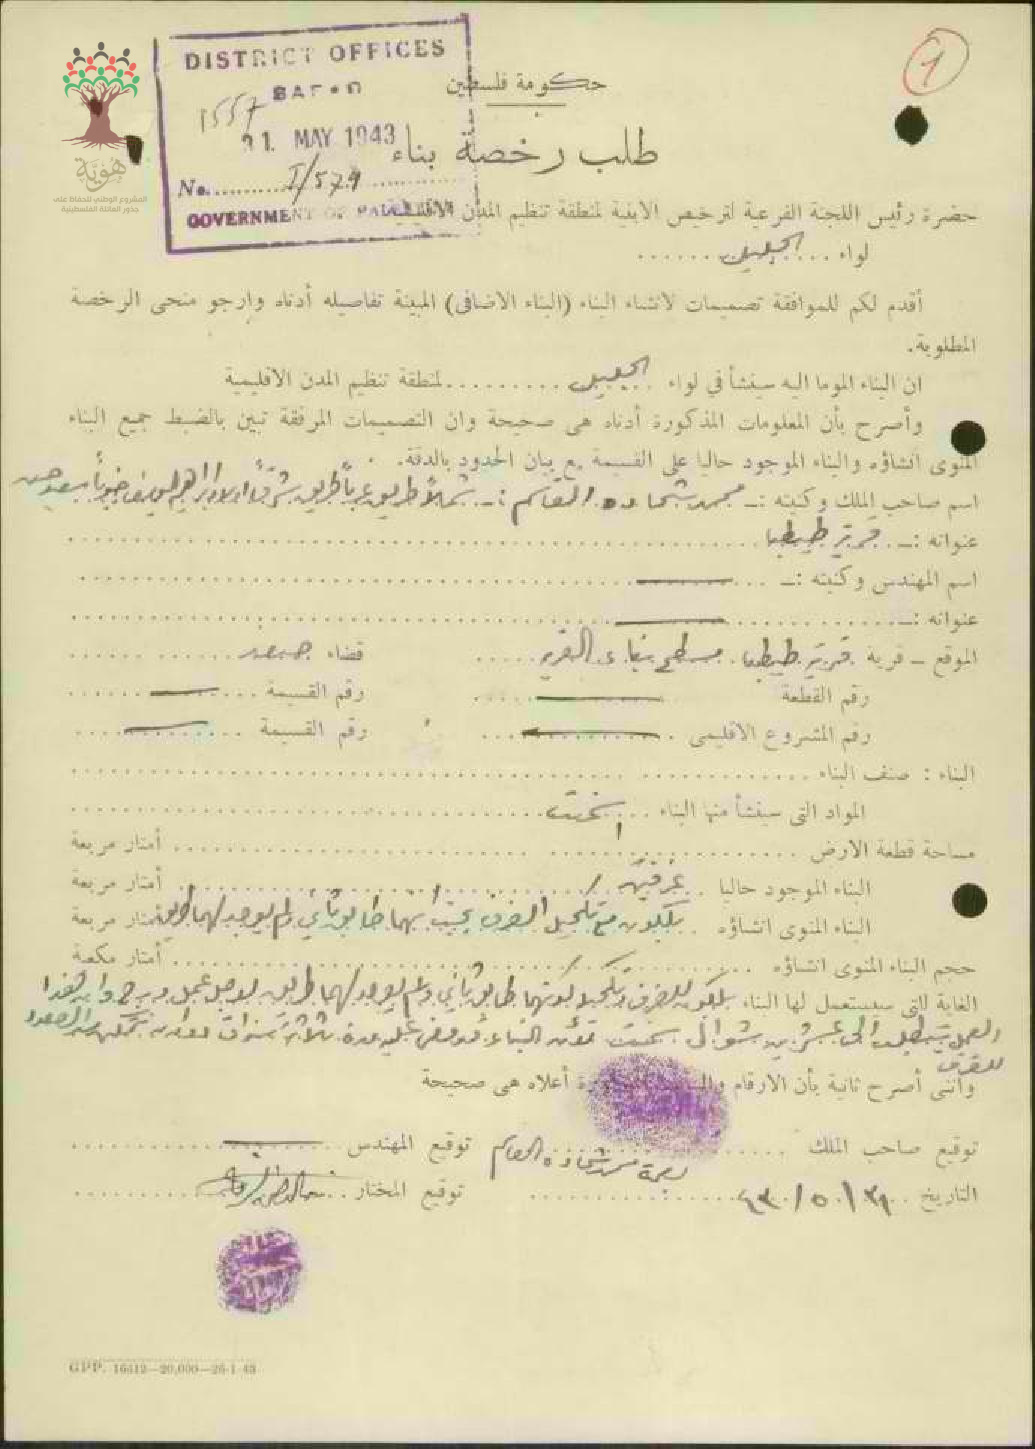 DISTRICT OFFICES
SAFAD
1557
31 MAY 1943
No. I/579
GOVERNMENT OF PALESTINE
1
هُويّة
المشروع الوطني للحفاظ على
جذور العائلة الفلسطينية
حكومة فلسطين
طلب رخصة بناء
حضرة رئيس اللجنة الفرعية لترخيص الابنية لمنطقة تنظيم المدن الاقليمية
لواء الجليل
أقدم لكم للموافقة تصميمات لانشاء البناء (البناء الاضافى) المبينة تفاصيله أدناه وارجو منحى الرخصة
المطلوبة.
ان البناء الموما اليه سينشأ في لواء الجليل لمنطقة تنظيم المدن الاقليمية
وأصرح بأن المعلومات المذكورة أدناه هى صحيحة وان التصميمات المرفقة تبين بالضبط جميع البناء
المنوى انشاؤه والبناء الموجود حاليا على القسيمة مع بيان الحدود بالدقة.
اسم صاحب الملك وكنيته :ـ محمد شحاده القاسم :ـ شمالاً طريق غرباً طريق شرقاً
عنوانه :ـ قرية طيطبا
اسم المهندس وكنيته :ـ
عنوانه :ـ
الموقع ــ قرية قرية طيطبا مسطح بناء القرية قضاء صفد
رقم القطعة رقم القسيمة
رقم المشروع الاقليمى رقم القسيمة
البناء : صنف البناء
المواد التى سينشأ منها البناء
مساحة قطعة الارض أمتار مربعة
البناء الموجود حاليا غرفتين أمتار مربعة
البناء المنوى انشاؤه بلكون مع تكحيل الغرف طابق ثاني ولم يوجد لهما أمتار مربعة
حجم البناء المنوى انشاؤه أمتار مكعبة
الغاية التى سيستعمل لها البناء بلكون للغرف طابق ثاني ولم يوجد لهما طريق
العمل
للغرف
وانى أصرح ثانية بأن الارقام أعلاه هى صحيحة
توقيع صاحب الملك بصمة محمد شحاده القاسم توقيع المهندس
التاريخ ٣١/٥/٤٣ توقيع المختار
GPP. 16612—20,000—26-1-43